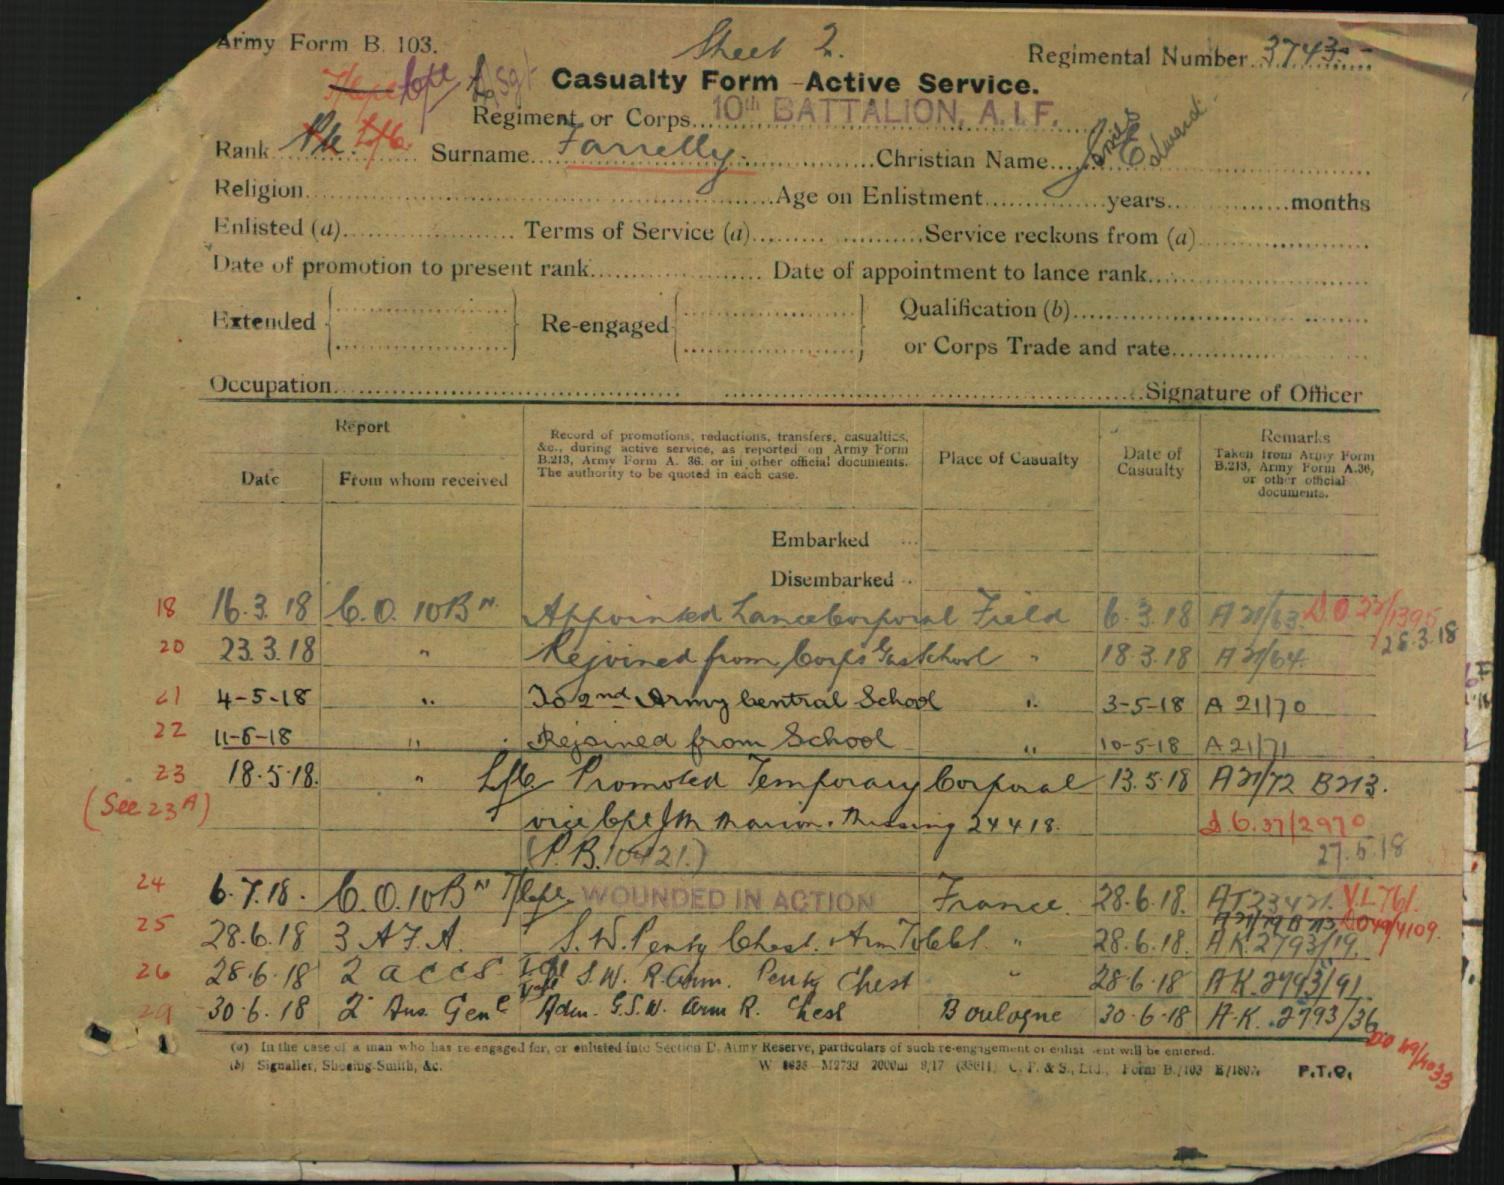 Army Form B. 103.
Sheet 2.
Regimental Number 3743
T/Cpl Cpl L/Sgt
Casualty Form - Active Service.
Regiment or Corps 10th BATTALION, A.I.F.
Rank Pte. L/Cpl. Surname Farrelly. Christian Name James Edward
Religion Age on Enlistment years months
Enlisted (a) Terms of Service (a) Service reckons from (a)
Date of promotion to present rank Date of appointment to lance rank
Extended Re-engaged Qualification (b)
or Corps Trade and rate
Occupation Signature of Officer
Report
Date From whom received
Record of promotions, reductions, transfers, casualties, &c., during active service, as reported on Army Form B.213, Army Form A. 36. or in other official documents. The authority to be quoted in each case.
Place of Casualty
Date of Casualty
Remarks
Taken from Army Form B.213, Army Form A.36, or other official documents.
Embarked
Disembarked
18 16.3.18 C.O. 10 Bn Appointed Lance Corporal Field 6.3.18 A 21/63. D.O 22/1395
26.3.18
20 23.3.18 " Rejoined from Corps Gas School " 18.3.18 A 21/64.
21 4-5-18 " To 2nd Army Central School " 3-5-18 A 21/70
22 11-5-18 " Rejoined from School " 10-5-18 A 21/71
23 18.5.18. " L/Cpl Promoted Temporary Corporal 13.5.18 A 21/72 B213.
(See 23A) vice Cpl J.M. Marion. Missing 24 4 18. D.O. 37/2970
(P.B. 10421.) 27.5.18
24 6.7.18. C.O. 10 Bn T/Cpl. WOUNDED IN ACTION France. 28.6.18. AT 23421. V.L 761.
A 21/79 B 213 DO 49/4109.
25 28.6.18 3 A.F.A. S.W. Pentg Chest. Arm " 28.6.18. A K 2793/19.
26 28.6.18 2 a c c s S.W. R. Arm. Pentg Chest " 28.6.18 A K. 2793/91.
29 30.6.18 2 Aus. Genl Adm. G.S.W. Arm R. Chest Boulogne 30.6.18 A.K. 2793/36
(a) In the case of a man who has re-engaged for, or enlisted into Section D. Army Reserve, particulars of such re-engagement or enlistment will be entered.
(b) Signaller, Shoeing-Smith, &c. 2000m 9/17 C. P. & S., Ltd., Form B./103 P.T.O.